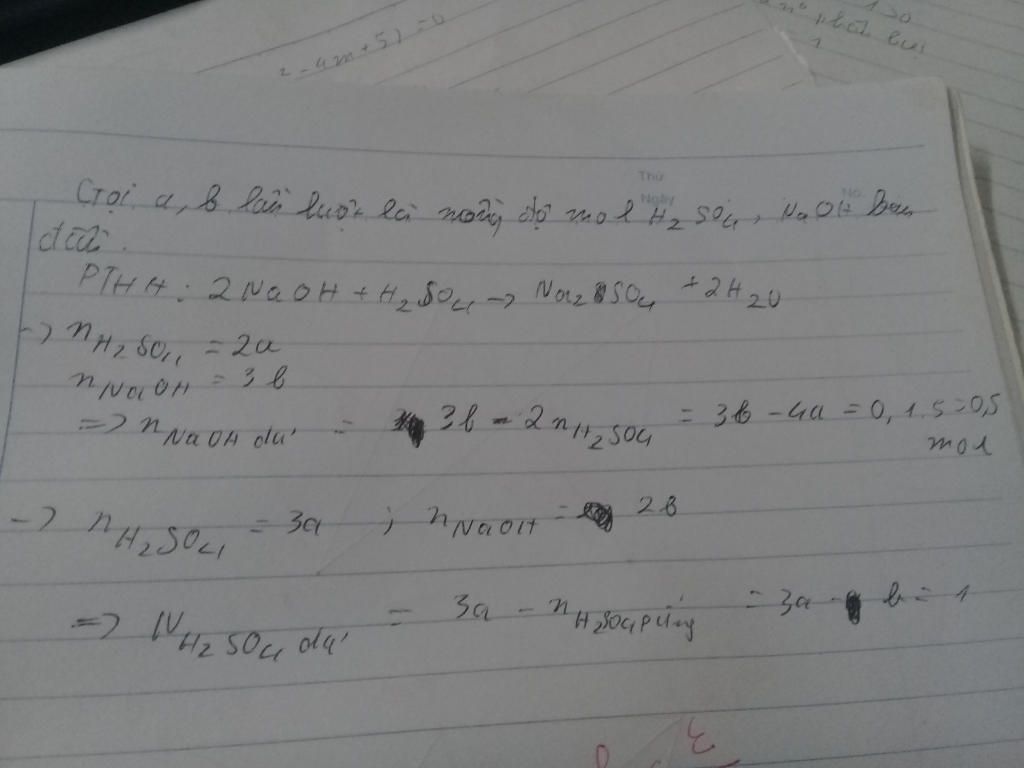 2 - 4m + 5) = 0
Thứ
Ngày
No.
Gọi a, b lần lượt là nồng độ mol H2SO4, NaOH ban
đầu.
PTHH: 2NaOH + H2SO4 -> Na2SO4 + 2H2O
-> nH2SO4 = 2a
nNaOH = 3b
=> nNaOH dư = 3b - 2nH2SO4 = 3b - 4a = 0,1.5 = 0,5
mol
-> nH2SO4 = 3a ; nNaOH = 2b
=> NH2SO4 dư = 3a - nH2SO4 pứng = 3a - b = 1